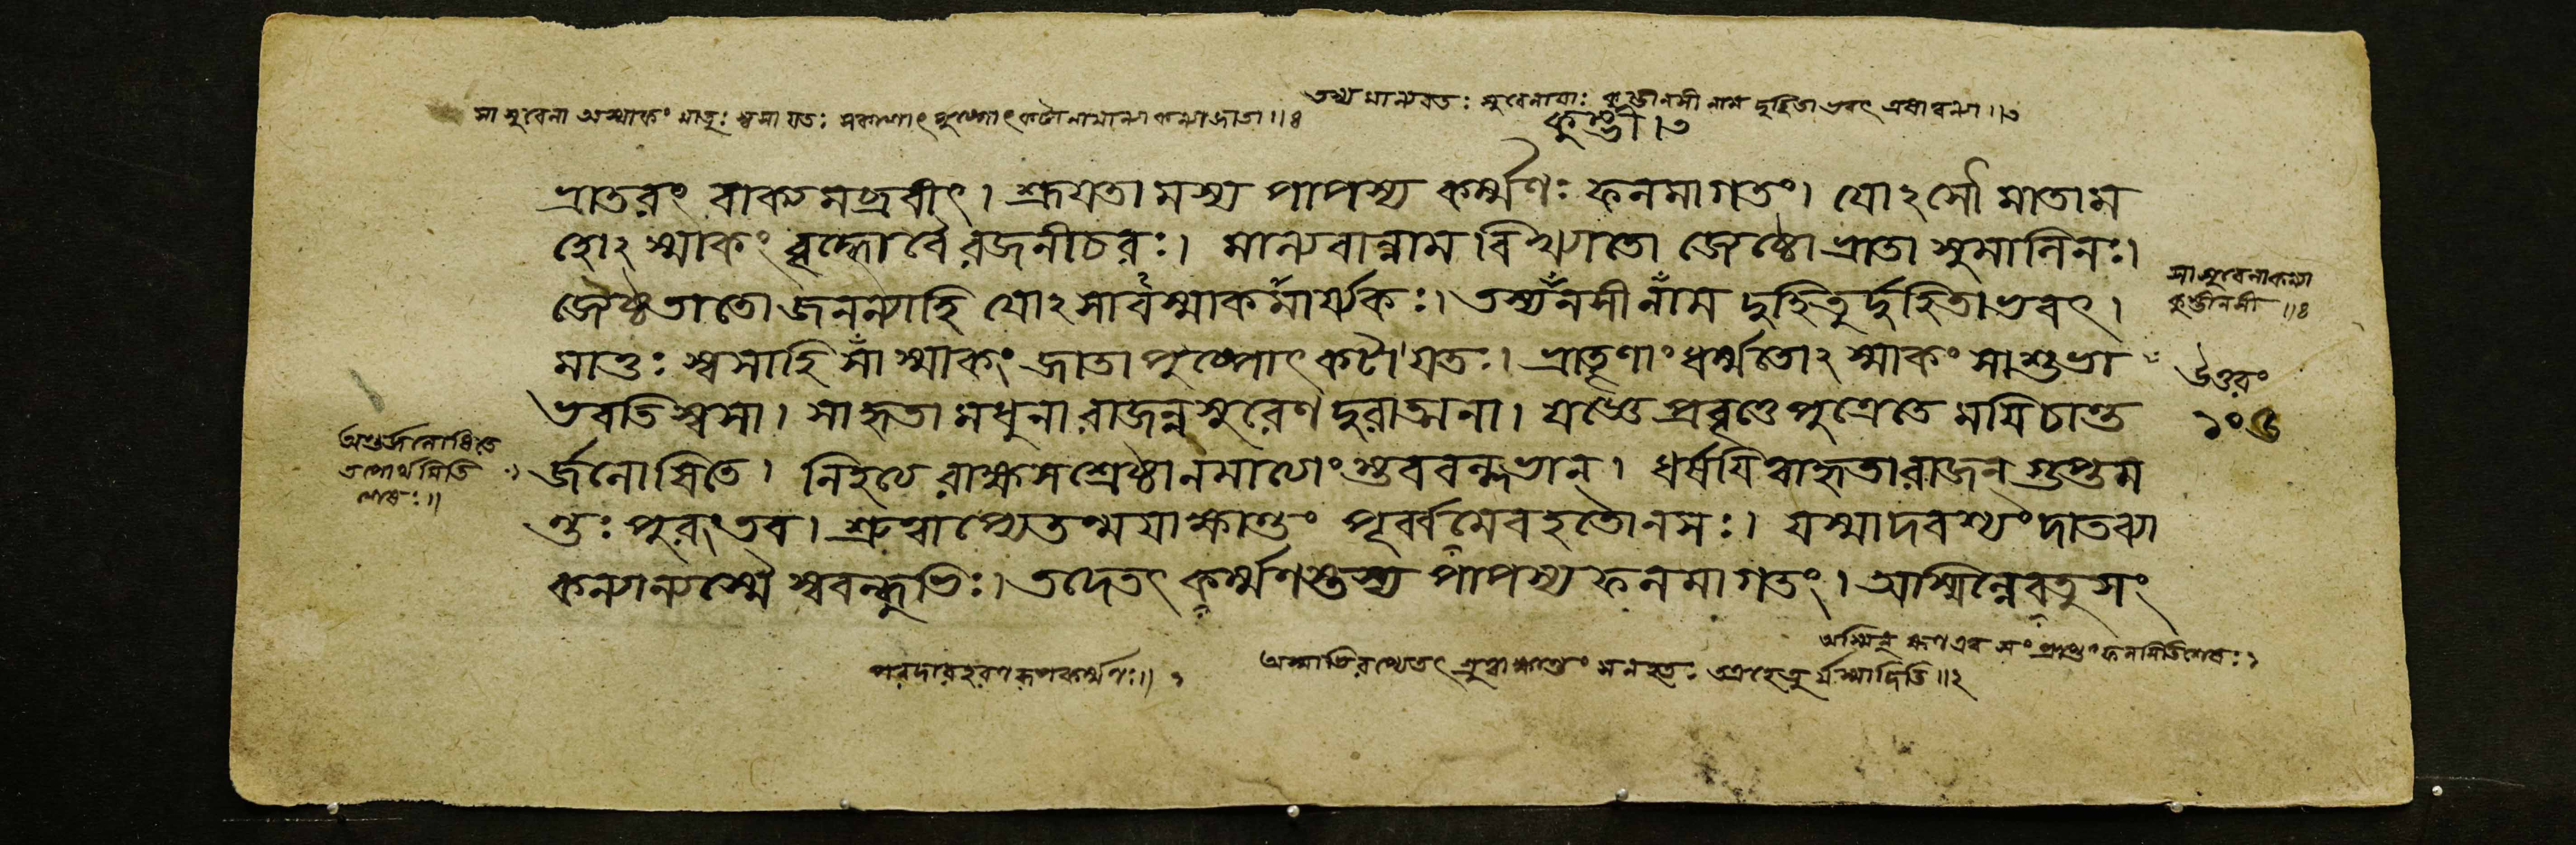 সা সুবেলা অস্মাকং মাতুঃ স্বসা যতঃ সকাশাৎ পুষ্পোৎকটা নামান্যা কন্যা জাতা॥৪
তস্য মাল্যবতঃ সুবেলায়াঃ কুম্ভীনসী নাম দুহিতাভবৎ ॥৩
কুম্ভী।৩
ভ্রাতরং বাক্যমব্রবীৎ। শ্রূয়তামস্য পাপস্য কর্ম্মণঃ ফলমাগতং। যোঽসৌ মাতাম
হোঽস্মাকং বৃদ্ধো বৈ রজনীচরঃ। মাল্যবান্নাম বিখ্যাতো জ্যেষ্ঠো ভ্রাতা সুমালিনঃ।
জ্যেষ্ঠতাতো জনন্যা হি যোঽসাবস্মাকমার্য্যকঃ। তস্য নসী নাম দুহিতুর্দুহিতাভবৎ।
মাতুঃ স্বসা হি সাস্মাকং জাতা পুষ্পোৎকটা যতঃ। ভ্রাতৄণাং ধর্ম্মতোঽস্মাকং সা শুভা
ভবতি স্বসা। সা হৃতা মধুনা রাজন্নসুরেণ দুরাত্মনা। যজ্ঞে প্রবৃত্তে পুত্রে তে ময়ি চান্ত
র্জলোষিতে। নিহত্য রাক্ষসশ্রেষ্ঠানমাত্যাংস্তব বল্লভান্। ধর্ষয়িত্বা হৃতা রাজন্ গুপ্তম
ন্তঃপুরং তব। শ্রুত্বাপ্যেতন্ময়া ক্ষান্তং পূর্ব্বমেব হতো ন সঃ। যস্মাদবশ্যং দাতব্যা
কন্যান্যস্মৈ স্ববন্ধুভিঃ। তদেতৎ কর্ম্মণস্তস্য পাপস্য ফলমাগতং। অস্মিন্নেব তু সং
সা সুবেলাকন্যা
কুম্ভীনসী ॥৪
উত্তরং
১০৫
অন্তর্জলোষিতে
তপোর্থমিতি
শেষঃ॥
পরদারহরণরূপকর্ম্মণঃ॥ ১
অস্মাভিরপ্যেতৎ শ্রুত্বা ক্ষান্তং ন হতঃ তত্র হেতুর্যস্মাদিতি॥২
অস্মিন্ ক্ষণ এব সংপ্রাপ্তং ফলমিতিশেষঃ১